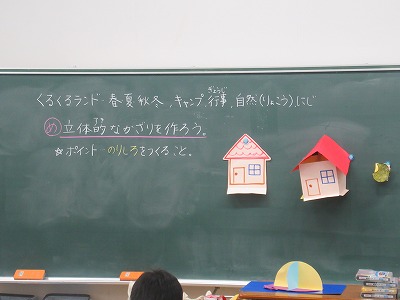 くるくるランド・春夏秋冬、キャンプ、行事、自然(りょこう)、にじ
め 立体的なかざりを作ろう。
☆ポイント…のりしろをつくること。